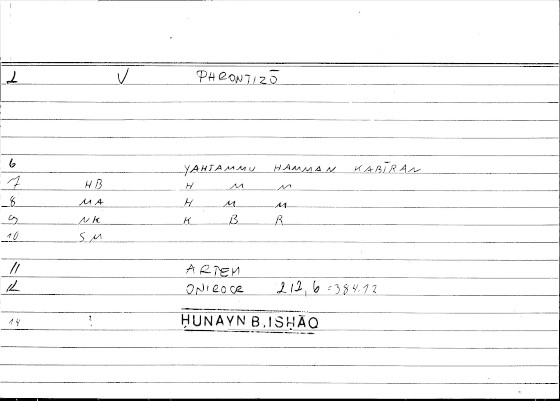 1 V PHRONTIZŌ
6 YAHTAMMU HAMMAN KABĪRAN
7 HB H M M
8 MA H M M
9 NK K B R
10 SM
11 ARTEM
12 ONIROCR 212,6 = 384.12
14 ! ḤUNAYN B. ISḤĀQ